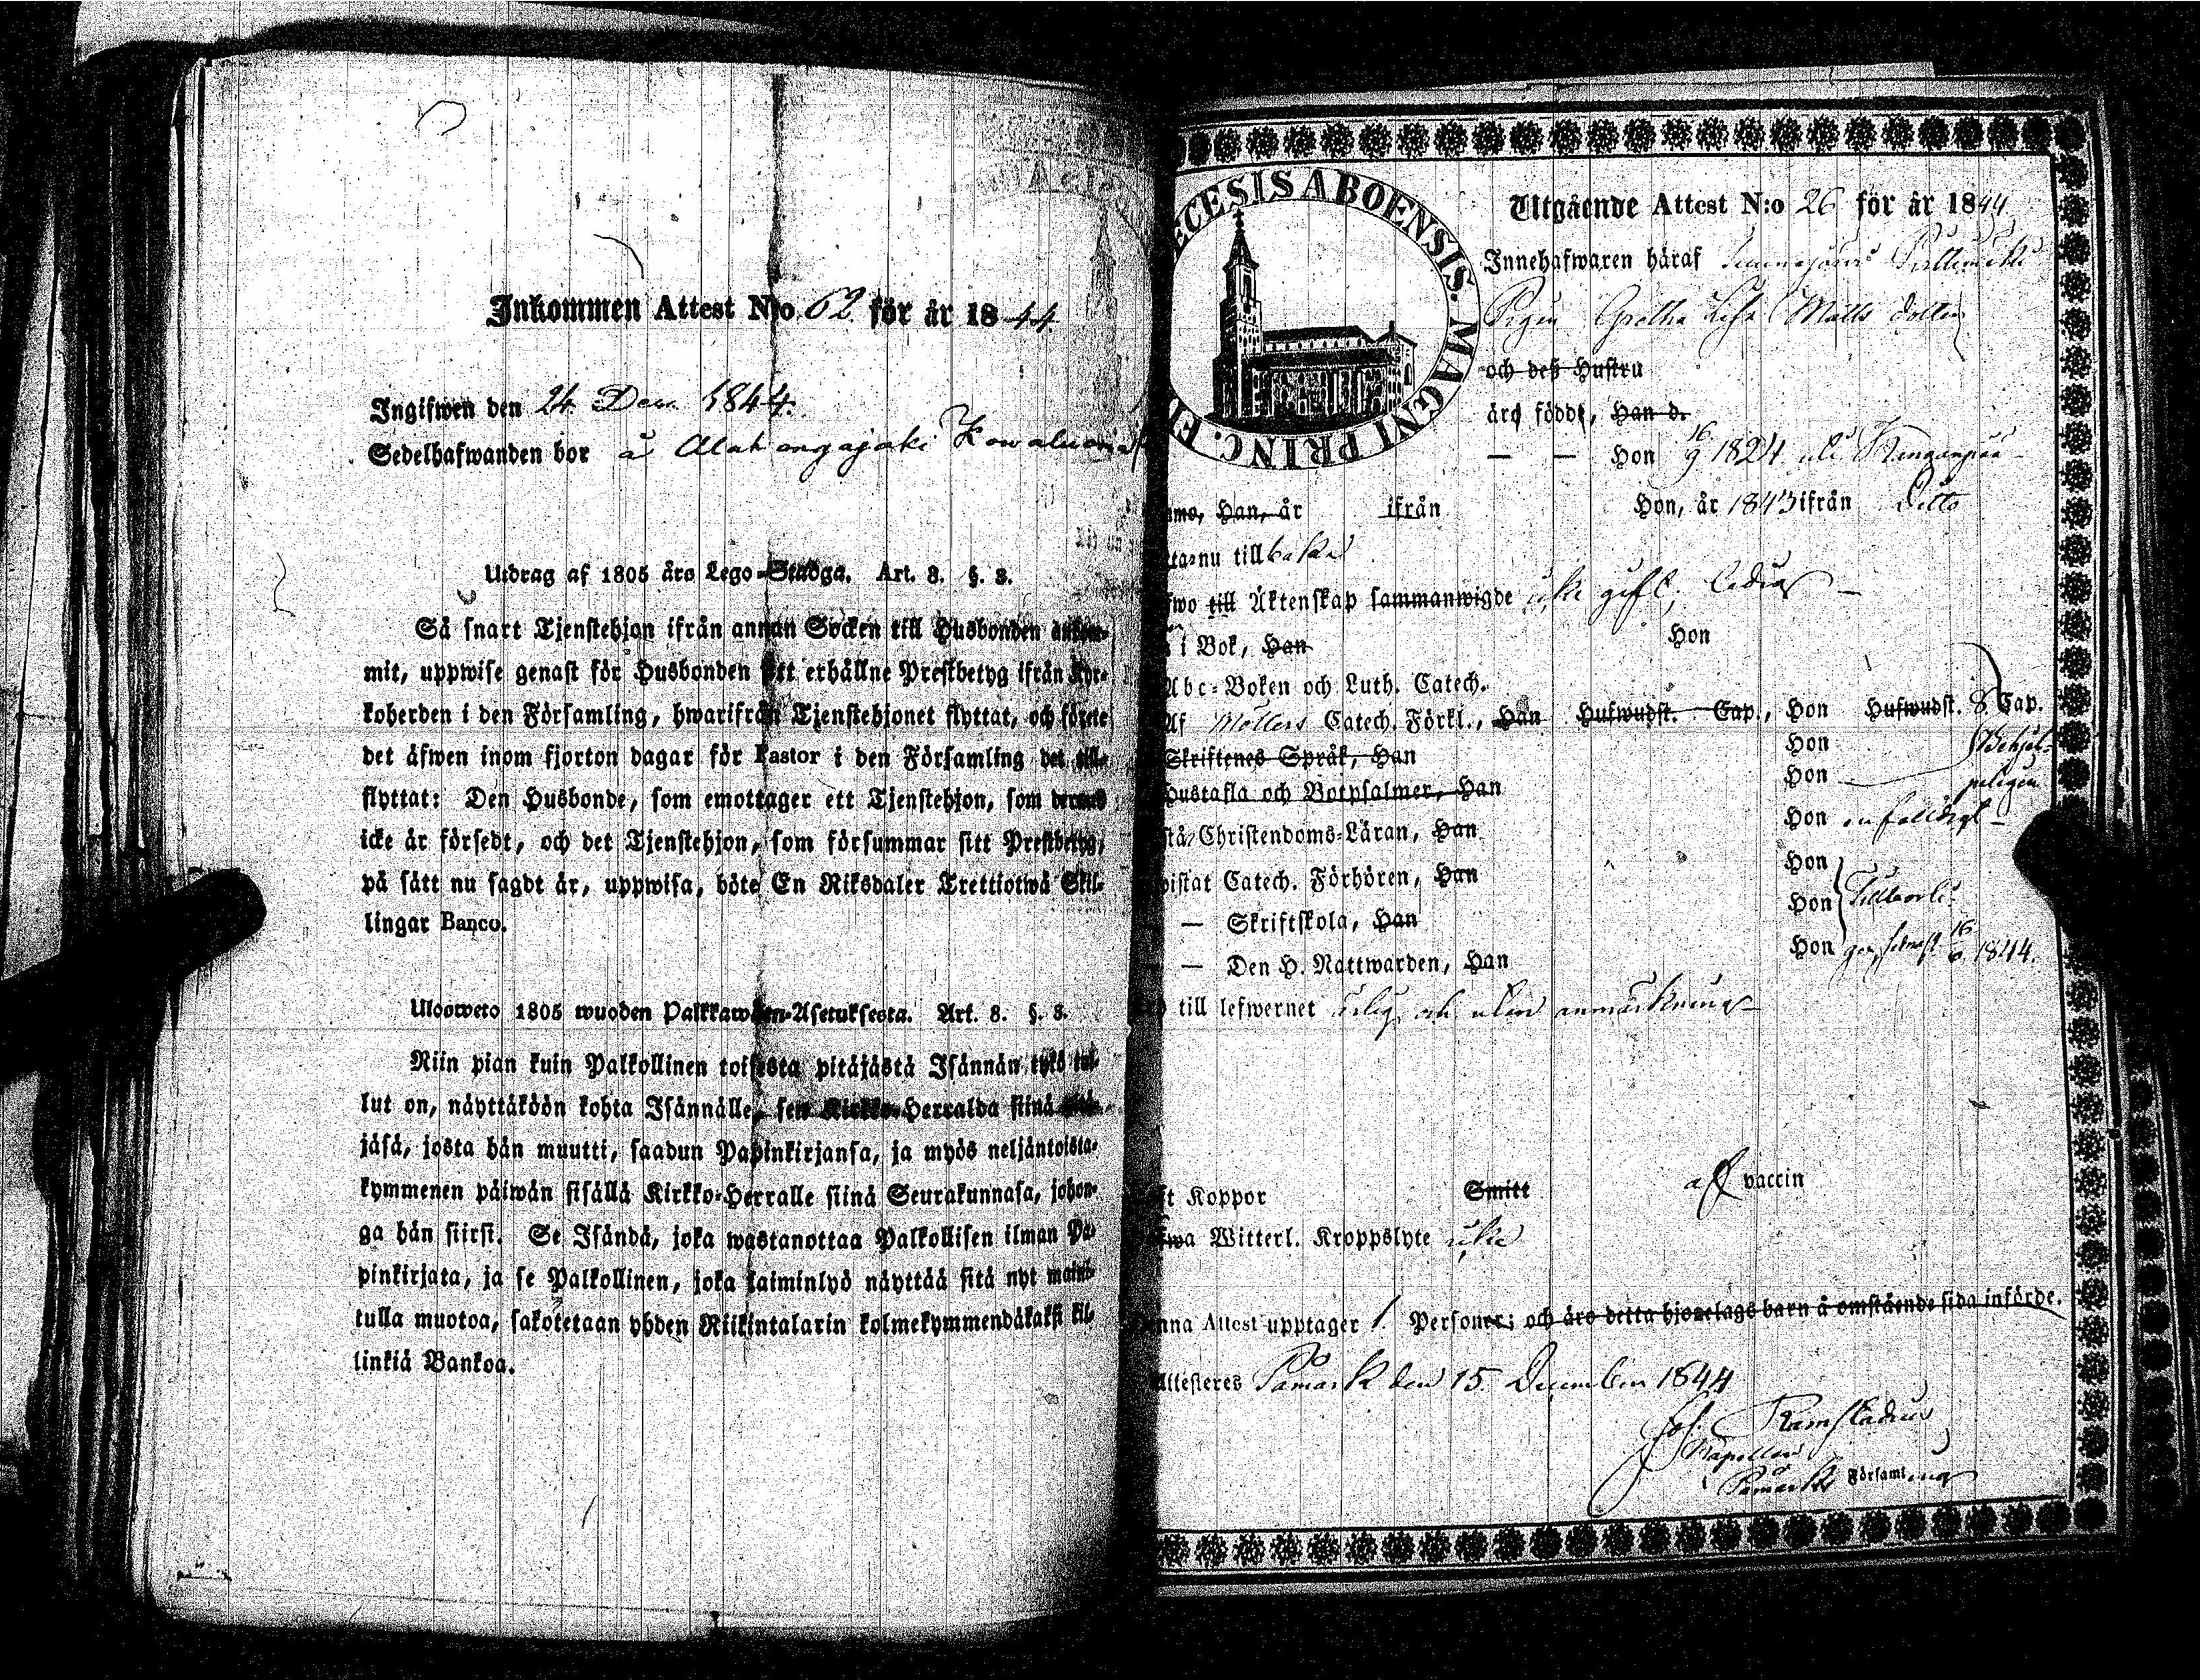 Inkommen Attest N:o 62 för år 1844
Ingifwen den 24 Dec. 1844.
Sedelhafwanden bor å Alah
Utdrag af 1805 års Lego-Stadga. Art. 8. §. 8.
Så snart Tjenstehjon ifrån annan Socken till Husbonden ankom-
mit, uppwise genast för Husbonden sitt erhållne Prestbetyg ifrån Kyr-
koherden i den Församling, hwarifrån Tjenstehjonet flyttat, och förete
det äfwen inom fjorton dagar för Pastor i den Församling det till-
flyttat: Den Husbonde, som emottager ett Tjenstehjon, som dermed
icke är försedt, och det Tjenstehjon, som försummar sitt Prestbetyg,
på sätt nu sagdt är, uppwisa, böte En Riksdaler Trettiotwå Skil-
lingar Banco.
Ulosweto 1805 wuoden Palkkawäen-Asetuksesta. Art. 8. §. 8.
Niin pian kuin Palkollinen toisesta pitäjästä Isännän tykö tul-
lut on, näyttäköön kohta Isännälle, sen Kirkko-Herralda siinä pitä-
jäsä, josta hän muutti, saadun Papinkirjansa, ja myös neljäntoista-
kymmenen päiwän sisällä Kirkko-Herralle siinä Seurakunnasa, johon-
ga hän siirsi. Se Isändä, joka wastanottaa Palkollisen ilman Pa-
pinkirjata, ja se Palkollinen, joka laiminlyö näyttää sitä nyt mainit-
tulla muotoa, sakotetaan yhden Riikintalarin kolmekymmendäkaksi kil-
linkiä Bankoa.
ECESIS ABOENSIS. MAGNI PRINC. FI
Utgående Attest N:o 26 för år 1844
Innehafwaren häraf
Pigan Gretha Lisa Matts dotter
och deß Hustru
äro födde, Han d.
— — Hon 16/9 1824
Han, år ifrån Hon, år 1843 ifrån Ditto
nu tillbaka
till Äktenskap sammanwigde icke gift, ledig —
i Bok, Han Hon
Abc-Boken och Luth. Catech.
Af Möllers Catech. Förkl., Han Hufwudst. Cap., Hon Hufwudst. 8 Cap.
Skriftenes Språk, Han Hon Behjel-
Hustafla och Botpsalmer, Han Hon — peligen
Christendoms-Läran, Han Hon enfaldigt —
Catech. Förhören, Han Hon
— Skriftskola, Han Hon
— Den H. Nattwarden, Han Hon 16/6 1844.
till lefwernet ärlig och utan anmärkning —
Koppor Smitt af vaccin
Witterl. Kroppslyte icke
Denna Attest upptager 1. Personer; och äro detta hjonelags barn å omstående sida införde.
Attesteres Påmark den 15. December 1844
Joh. Ramstadius
Kapellan
Påmarks Församling